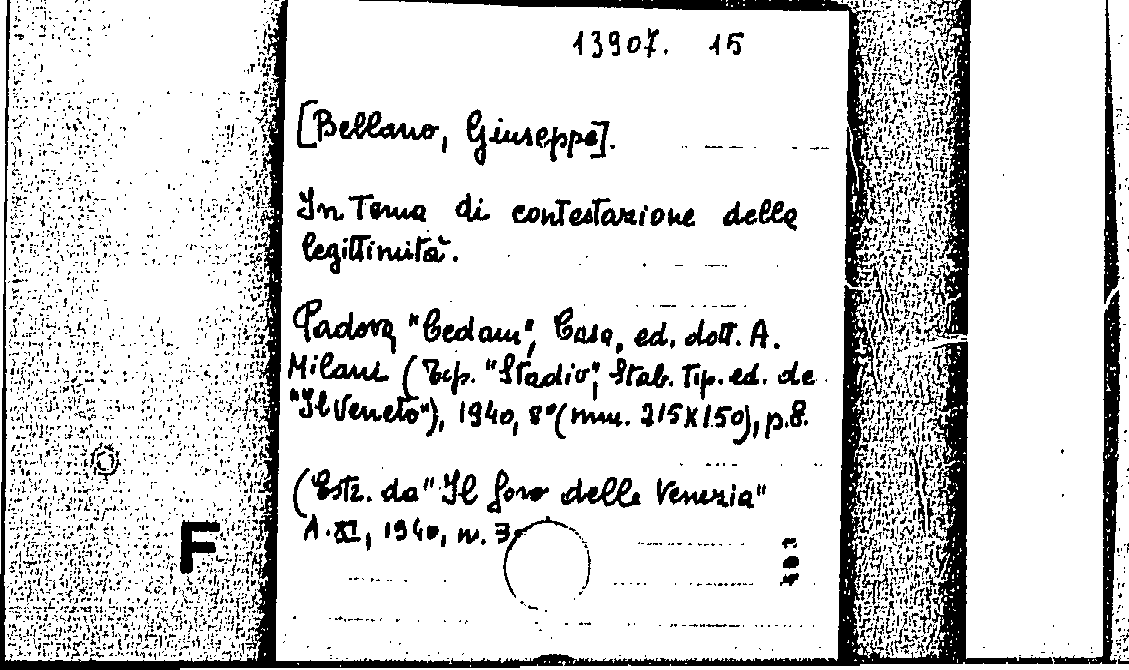 13907. 15
[Bellano, Giuseppe].
In Tema di contestazione della
legittimità.
Padova "Cedam", Casa, ed. dott. A.
Milani (Tip. "Stadio", Stab. Tip. ed. de
"Il Veneto"), 1940, 8° (mm. 215X150), p.8.
(Estr. da "Il foro delle Venezia"
A. XI, 1940, n. 3
F